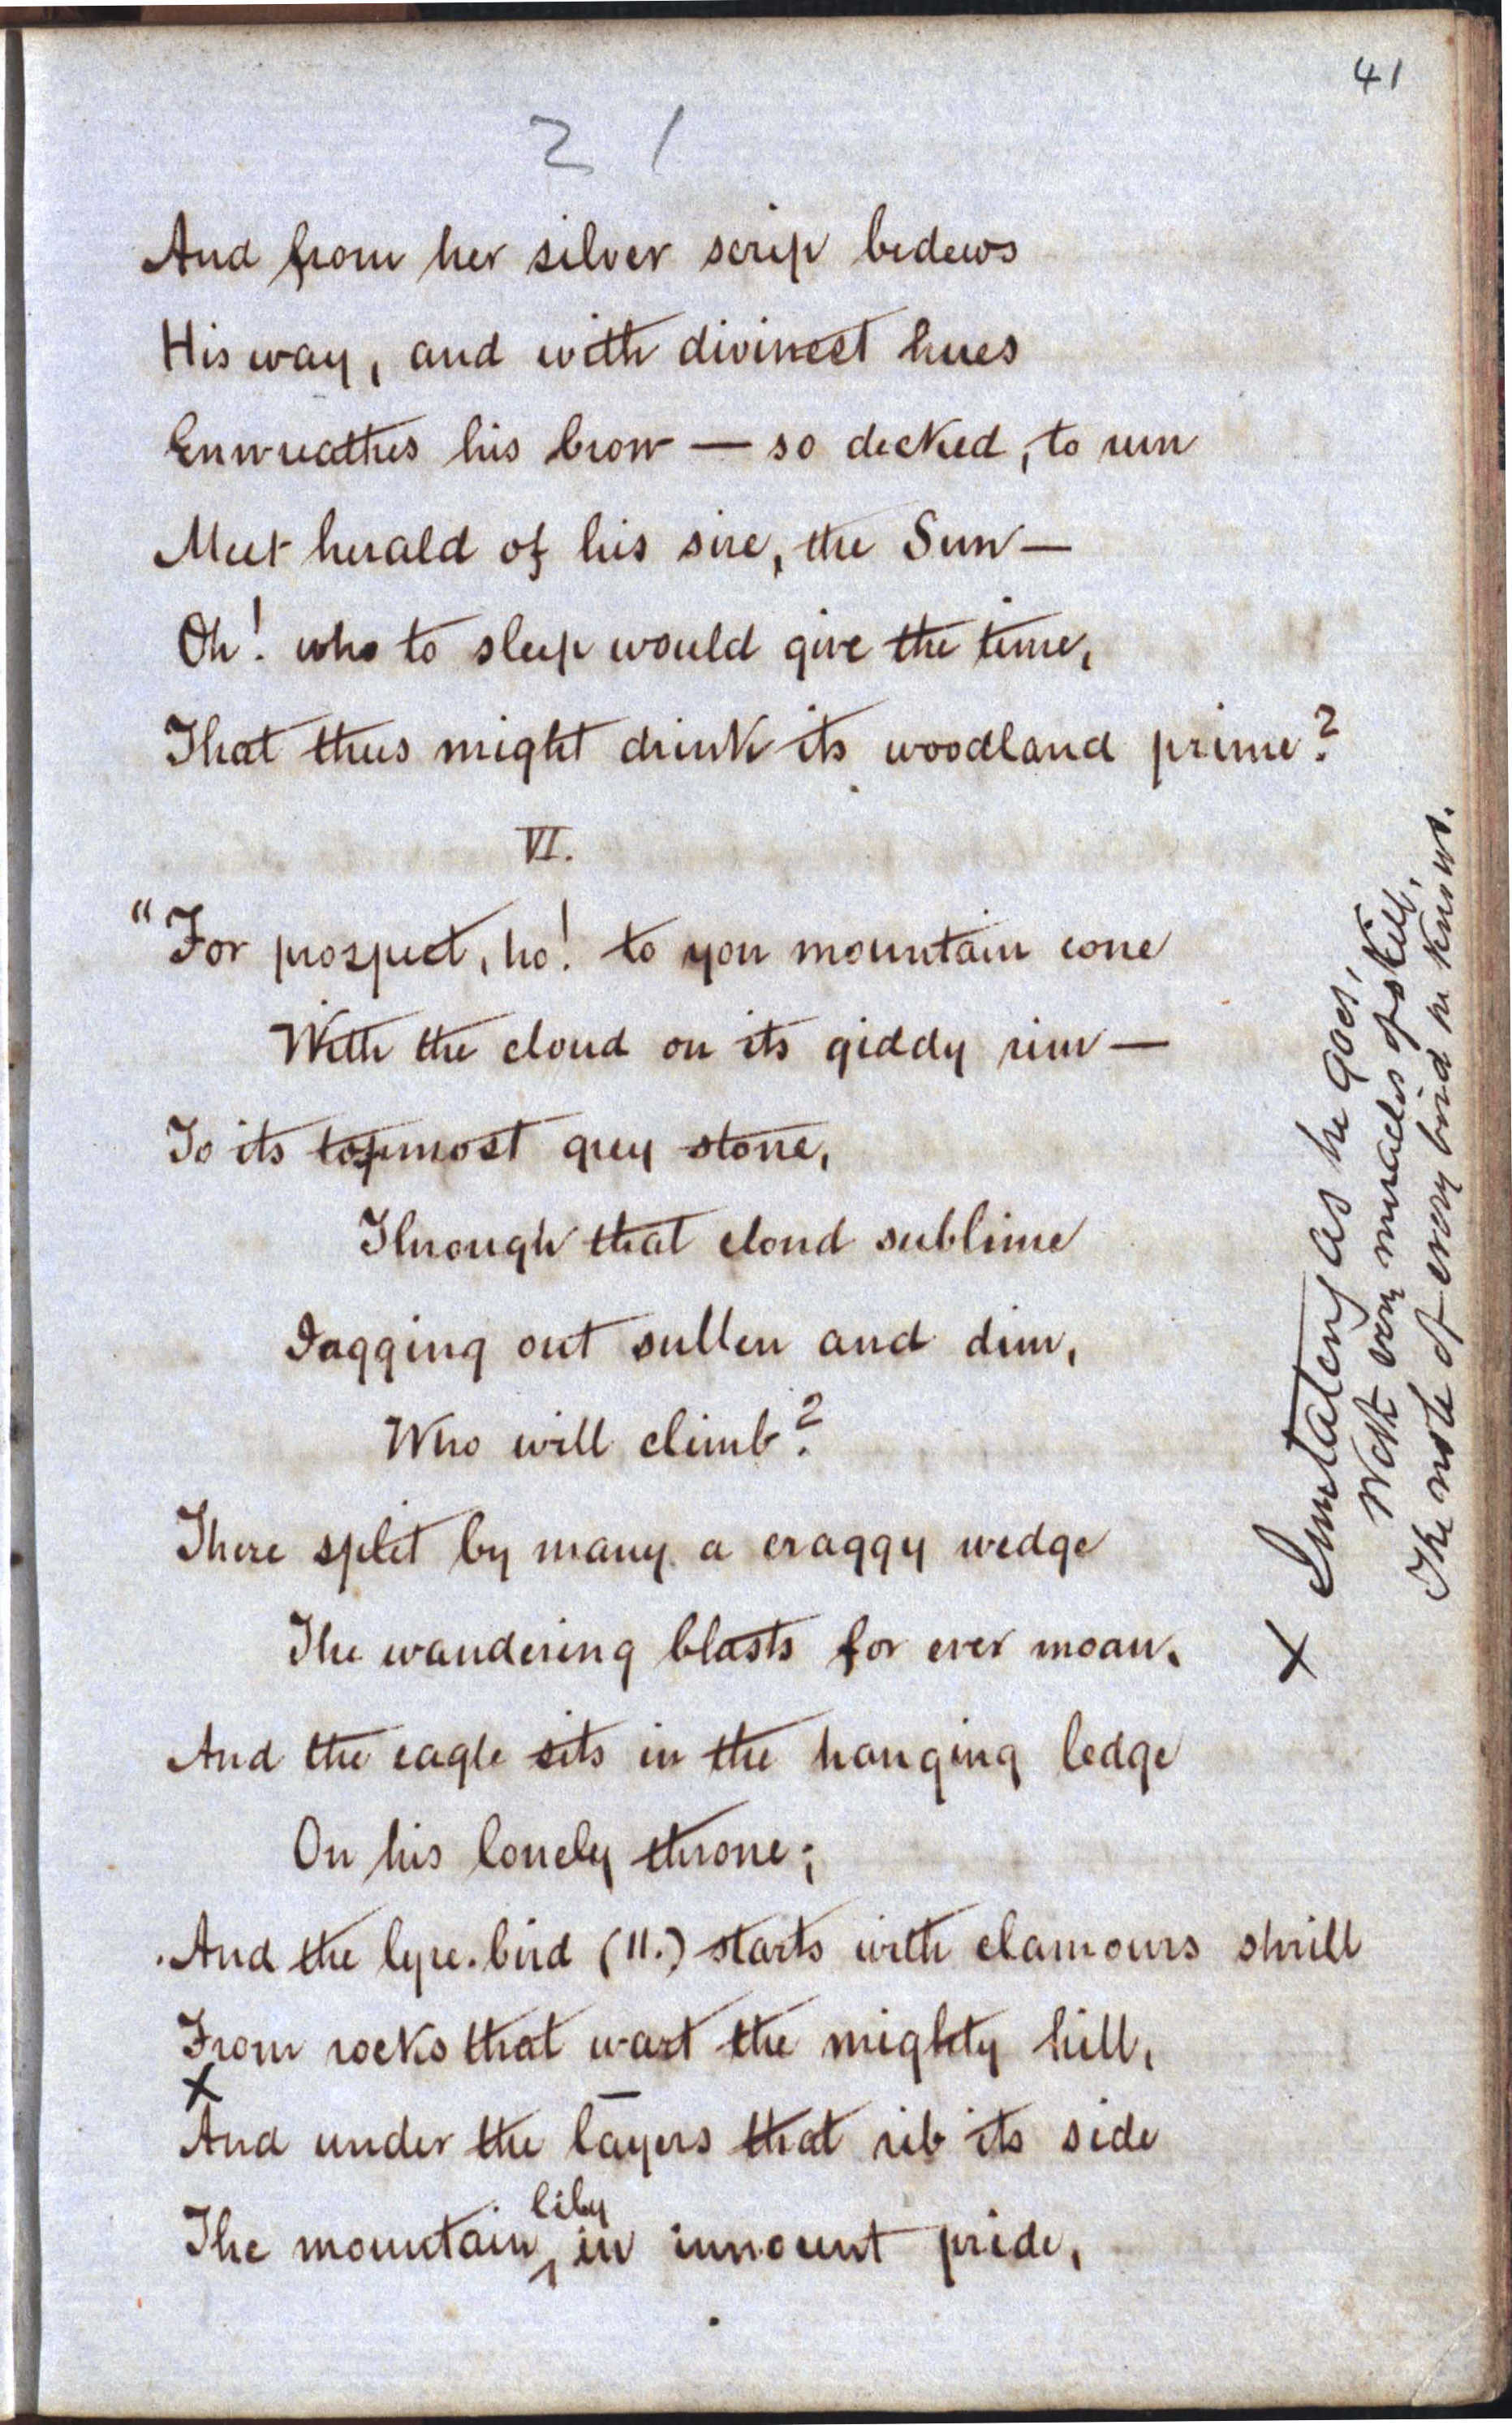 41
21
And from her silver scrip bedews
His way, and with divinest hues
Enwreathes his brow — so decked, to run
Meet herald of his sire, the Sun —
Oh! who to sleep would give the time,
That thus might drink its woodland prime?
VI.
"For prospect, ho! to yon mountain cone
With the cloud on its giddy rim —
To its topmost grey stone,
Through that cloud sublime
Jagging out sullen and dim,
Who will climb?
There split by many a craggy wedge
The wandering blasts for ever moan,
And the eagle sits in the hanging ledge
On his lonely throne;
And the lyre-bird (11.) starts with clamours shrill
From rocks that wart the mighty hill,
X
And under the layers that rib its side
The mountain lily in innocent pride,
X Imitating as he goes,
With very miracles of skill,
The note of every bird he knows.